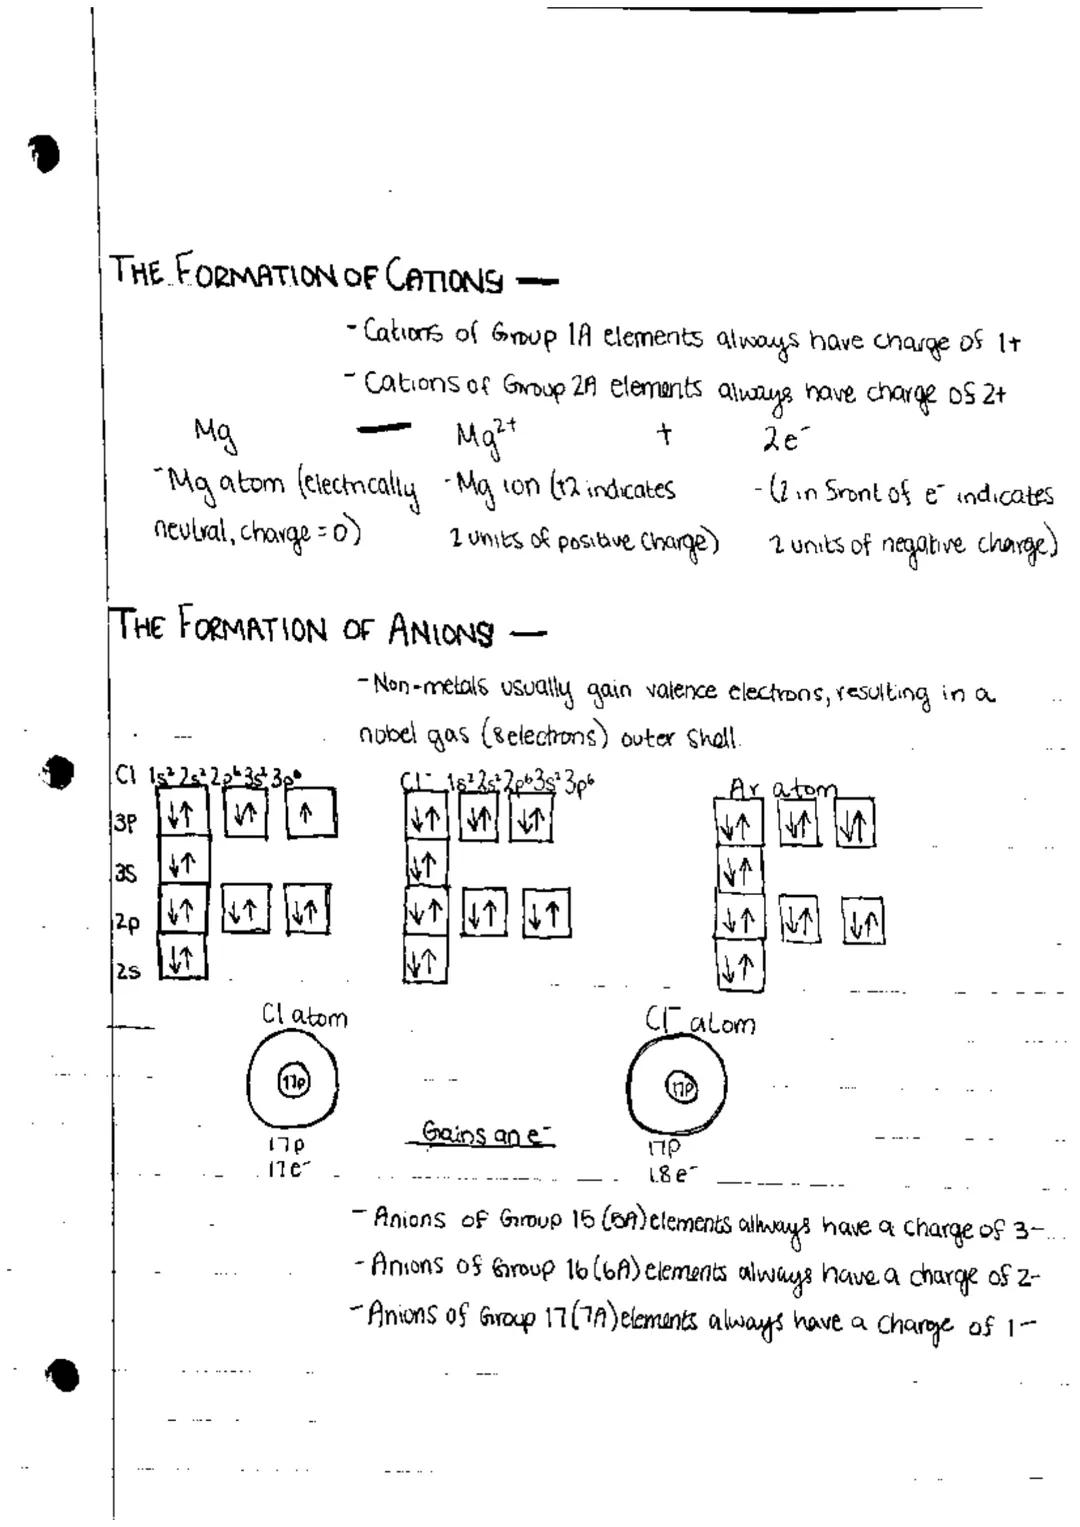 THE FORMATION OF CATIONS —
- Cations of Group 1A elements always have charge of 1+
- Cations of Group 2A elements always have charge of 2+
Mg — Mg²⁺ + 2e⁻
- Mg atom (electrically - Mg ion (+2 indicates - (2 in front of e⁻ indicates
neutral, charge = 0) 2 units of positive charge) 2 units of negative charge)
THE FORMATION OF ANIONS —
- Non-metals usually gain valence electrons, resulting in a
nobel gas (8 electrons) outer shell.
Cl 1s² 2s² 2p⁶ 3s² 3p⁵ Cl⁻ 1s² 2s² 2p⁶ 3s² 3p⁶ Ar atom
3P ↓↑ ↓↑ ↑ ↓↑ ↓↑ ↓↑ ↓↑ ↓↑ ↓↑
3S ↓↑ ↓↑ ↓↑
2p ↓↑ ↓↑ ↓↑ ↓↑ ↓↑ ↓↑ ↓↑ ↓↑ ↓↑
2s ↓↑ ↓↑ ↓↑
Cl atom Cl⁻ atom
17p 17p
Gains an e⁻
17p 17p
17e⁻ 18e⁻
- Anions of Group 15 (5A) elements always have a charge of 3-
- Anions of Group 16 (6A) elements always have a charge of 2-
- Anions of Group 17 (7A) elements always have a charge of 1-